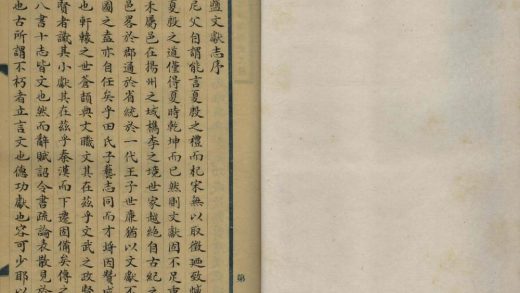 鹽文獻志序
尼父自謂能言夏殷之禮而杞宋無以取徵迺致
夏殷之道僅得夏時乾坤而已然則文獻固不足
未屬邑在揚州之域檇李之境世家越絕自古紀之
邑畧於郡通於省統於一代王子世廉猶以文獻不
國之盡亦自任矣乎田氏子藝志同而才埒因贊成
也軒轅之世蒼頡典文職文其在茲乎文武之政賢
賢者識其小獻其在茲乎秦漢而下遷固備矣傳之
八書十志皆文也然而辭賦詔令書疏論表散見於
也古所謂不朽者立言文也德功獻也容可少耶以
第